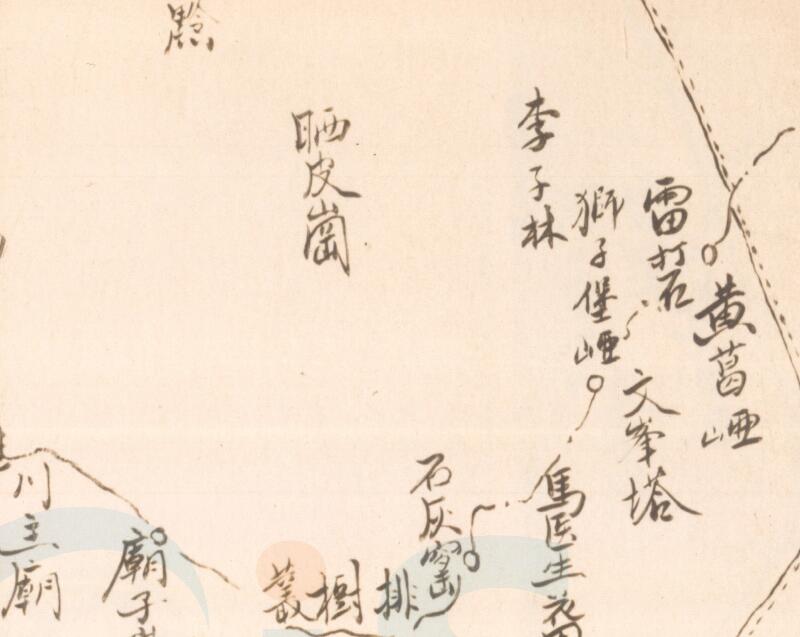 黄葛啞
雷打石
文峯塔
獅子堡啞
李子林
馬医生花
石灰窰
排樹叢
晒皮崗
黔
廟子
川主廟